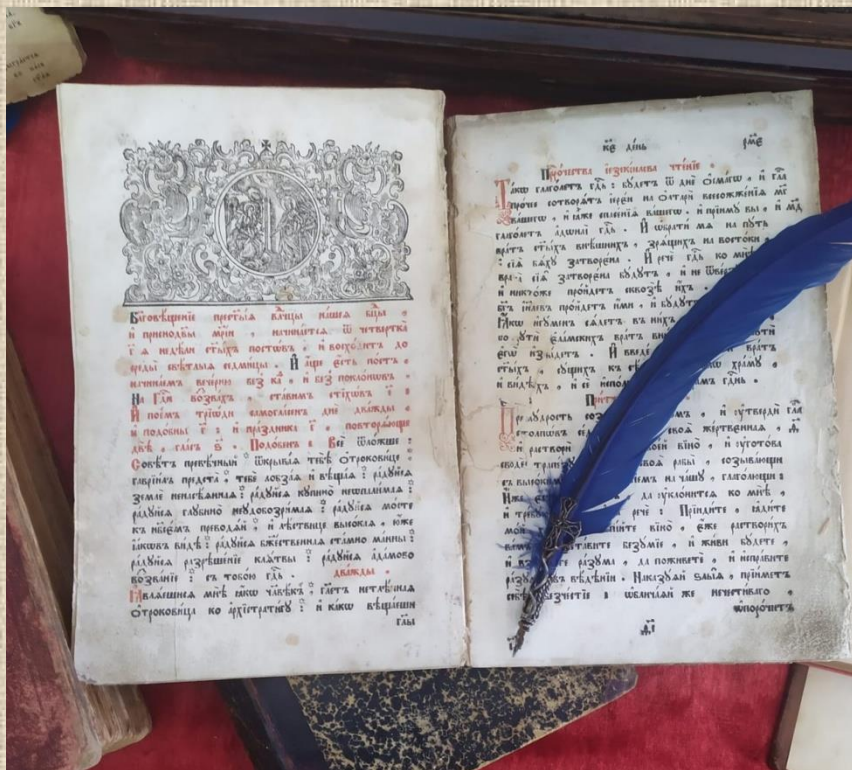 Бл҃говѣщенїе прест҃ыѧ влⷣцы нашеѧ бцⷣы ,
и҆ приснодв҃ы мр҃їи , начинаетсѧ ѿ четвертка
г҃ ѧ недѣли ст҃ыхъ постѡвъ , и҆ восходитъ до
среды свѣтлыѧ седмицы . И҆ а҆ще є҆сть постъ ,
начинаемъ вечерню без ка , и҆ без поклонѡвъ .
На Гдⷭ҇и воззвахъ , ставимъ стїхѡвъ
И҆ поемъ трїѡди самогласенъ дне дважды ,
и҆ подобны г҃ : и҆ праздника г҃ , повторѧюще
двѣ , гласъ ѕ҃ . Подобенъ : Всѐ ѿложше :
Совѣтъ превѣчный ѿкрываѧ тебѣ ѻ҆троковице ,
гаврїилъ предста , тебе лобзаѧ и҆ вѣщаѧ : радꙋйсѧ
земле ненасѣѧннаѧ : радꙋйсѧ кꙋпино неѡпалимаѧ :
радꙋйсѧ глꙋбино неꙋдобозримаѧ : радꙋйсѧ мосте
къ нб҃сѣмъ преводѧй , и҆ лѣствице высокаѧ , ю҆же
і҆а́кѡвъ видѣ : радꙋйсѧ бж҃ественнаѧ стамно манны :
радꙋйсѧ разрѣшенїе клѧтвы : радꙋйсѧ а҆дамово
воззванїе : съ тобою гдⷭ҇ь . дважды .
Ꙗ҆влѧешисѧ мнѣ ꙗ҆кѡ чл҃вѣкъ , гл҃етъ нетлѣннаѧ
ѻ҆троковица ко а҆рхїстратигꙋ : и҆ какѡ вѣщаеши
гл҃ы
к҃е день рм҃е
Пророчества і҆езекїилева чтенїе .
Такѡ глаголетъ гдⷭ҇ь : бꙋдетъ ѿ дне ѻ҆смагѡ , и҆
прочее сотворѧтъ і҆ереи на ѻ҆лтари всесожженїѧ
вашегѡ , и҆ ꙗ҆же спасенїѧ вашегѡ , и҆ прїимꙋ вы ,
глаголетъ а҆дѡнаи гдⷭ҇ь . И҆ ѡ҆брати мѧ на пꙋть
вратъ ст҃ыхъ внѣшнихъ , зрѧщихъ на востоки ,
и҆ сїѧ бѧхꙋ затворена . И҆ рече гдⷭ҇ь ко мнѣ
врата сїѧ затворена бꙋдꙋтъ , и҆ не
и҆ никтоже пройдетъ сквозѣ и҆хъ ,
бг҃ъ і҆и҃левъ пройдетъ и҆ми , и҆ бꙋдꙋтъ
Ꙗ҆кѡ и҆гꙋменъ сѧдетъ въ нихъ
по пꙋти є҆ламскихъ вратъ
є҆гѡ и҆зыдетъ . И҆ введе вратъ
ст҃ыхъ , сꙋщихъ храмꙋ ,
и҆ видѣхъ , и҆ се гдⷭ҇нь .
Премꙋдрость и҆ ᲂу҆тверди
столпѡвъ своѧ жертвеннаѧ ,
и҆ раствори своей вїно , и҆ ᲂу҆готова
своѧ рабы , созывающи
съ высокимъ на чашꙋ , глаголющи :
И҆же да ᲂу҆клонитсѧ ко мнѣ ,
рече : Прїидите , ꙗ҆дите
вїно , є҆же растворихъ
вамъ безꙋмїе , и҆ живи бꙋдете ,
и҆ разꙋма , да поживете , и҆ исправите
разꙋмъ въ вѣдѣнїи . Наказꙋѧй ѕлыѧ , прїиметъ
себѣ безчестїе , ѡ҆бличаѧй же нечестиваго ,
ѡ҆порочитъ